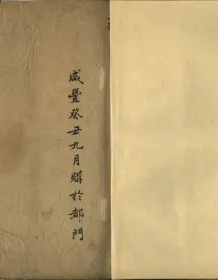 咸豐癸丑九月購於都門